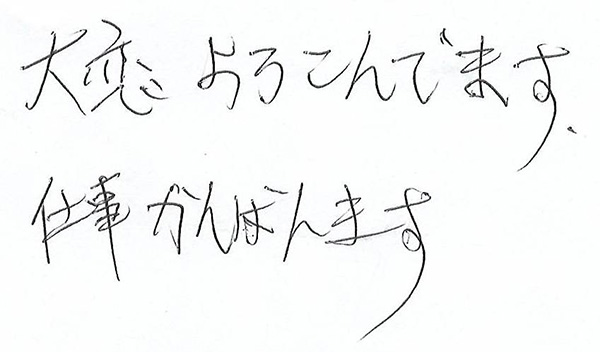 大変ようこんでます.
仕事がんばんます